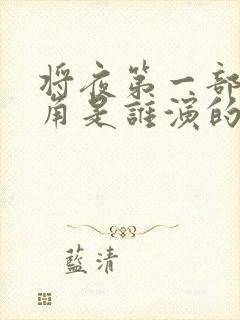 将夜第一部
角是誰演的
藍清